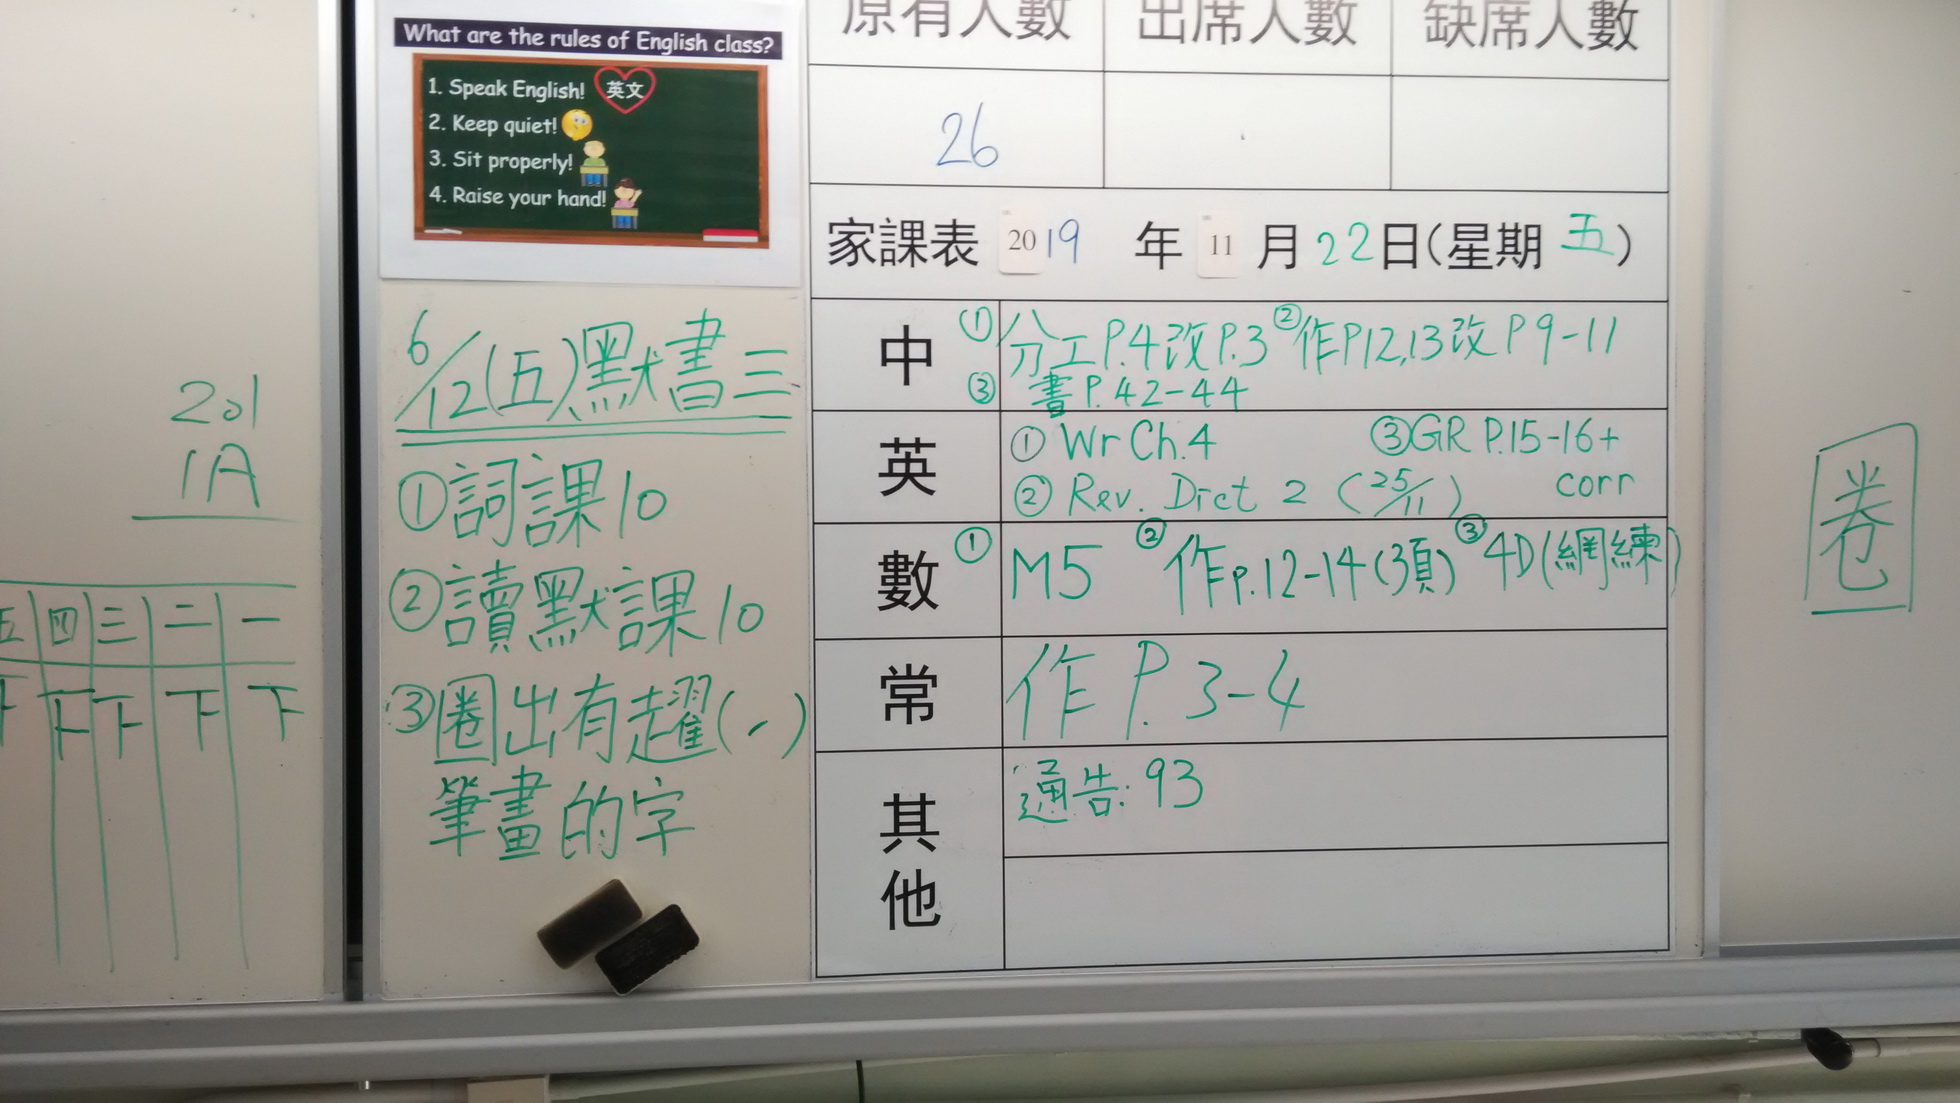 What are the rules of English class?
1. Speak English! 英文
2. Keep quiet!
3. Sit properly!
4. Raise your hand!
原有人數 出席人數 缺席人數
26
家課表 2019 年 11 月 22 日(星期 五)
中 ① 分工P.4改P.3 ② 作P12,13改P9-11
③ 書P.42-44
英 ① Wr Ch.4 ③ GR P.15-16+
② Rev. Dict 2 (25/11) corr
數 ① M5 ② 作p.12-14(3頁) ③ 4D(網練)
常 作 P.3-4
其他 通告:93
6/12(五)默書三
① 詞課10
② 讀默課10
③ 圈出有趯(㇀)
筆畫的字
201
1A
五 四 三 二 一
下 下 下 下 下
圈